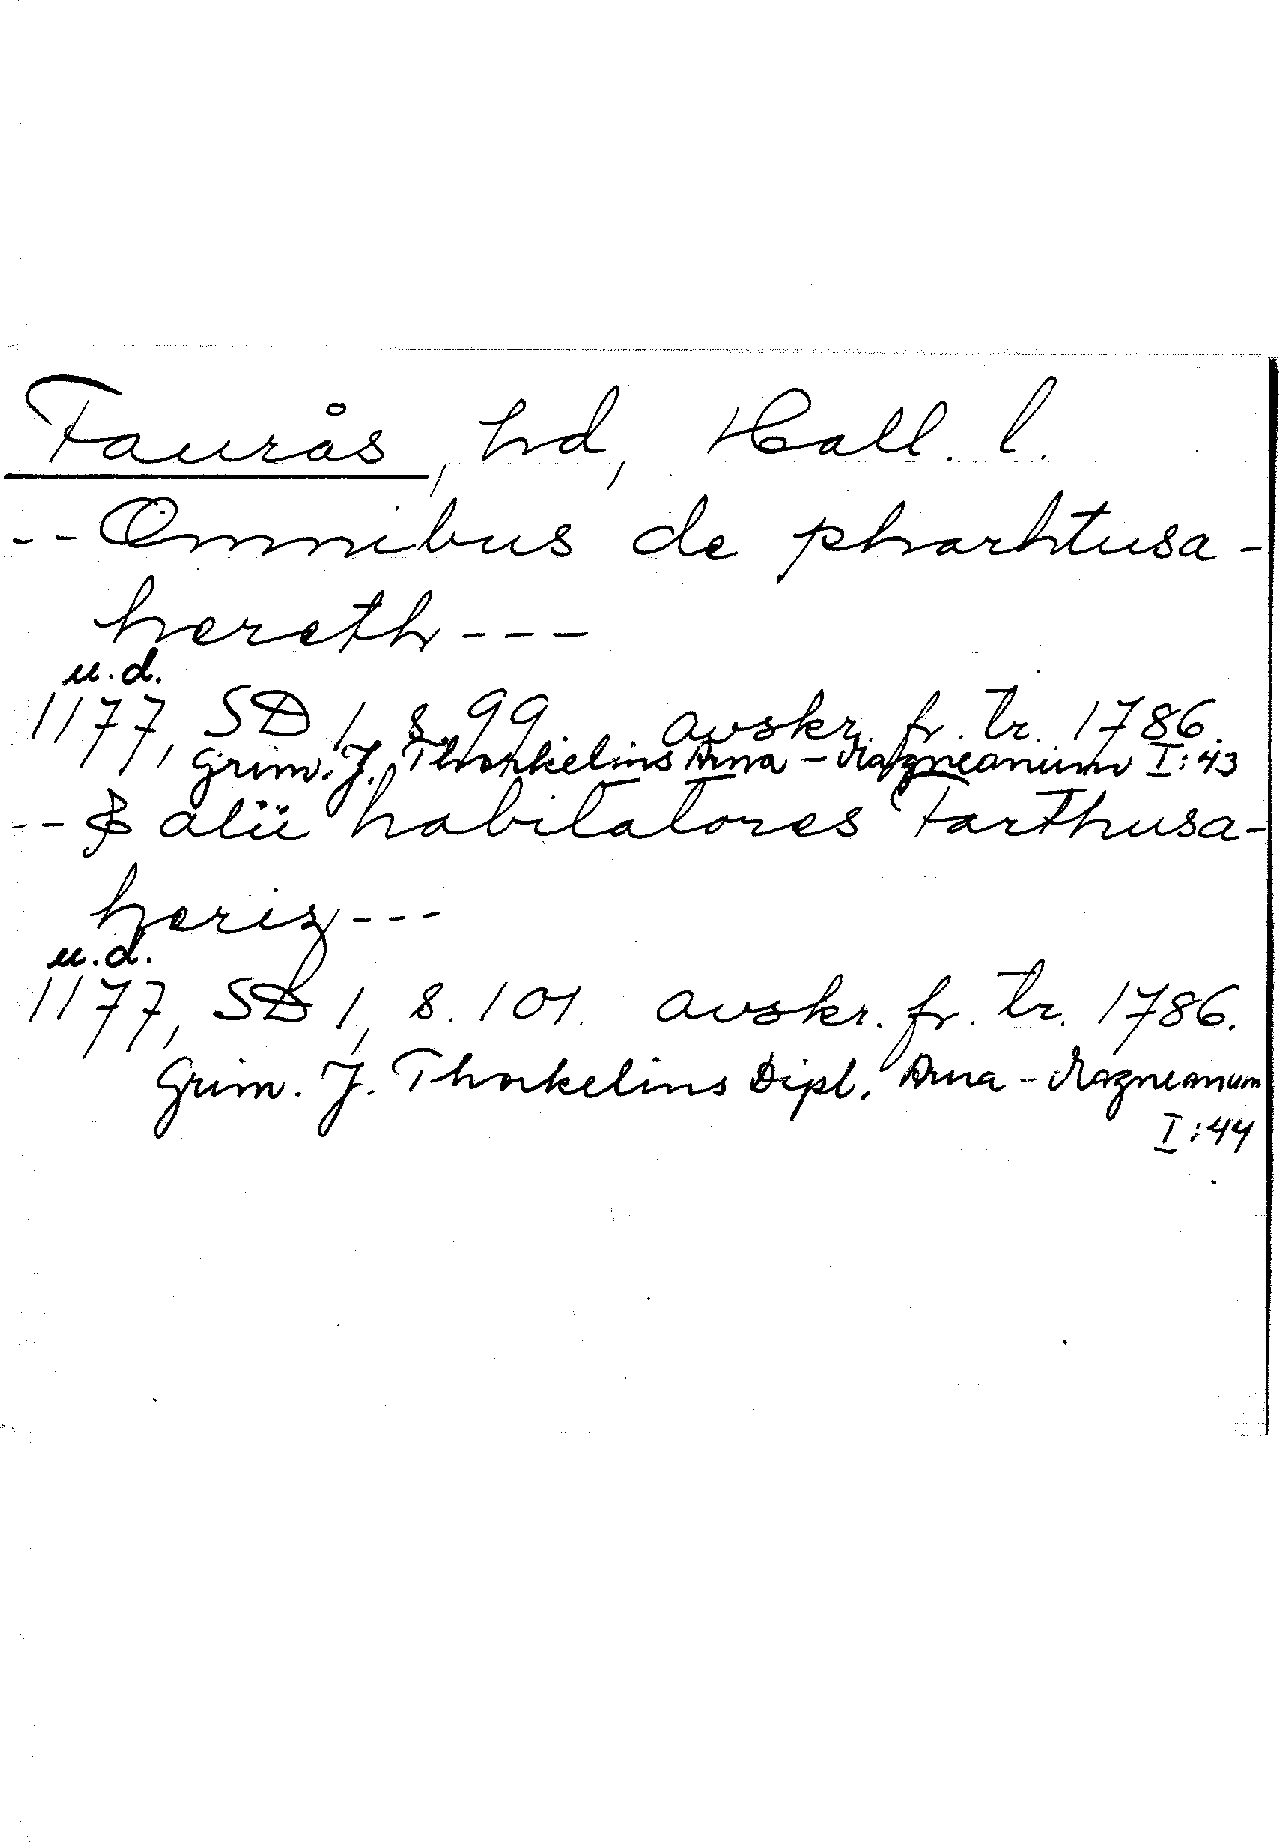 Faurås, hd, Hall. l.
-- Omnibus de pharhtusa-
hereth ---
u.d.
1177, SD 1, s. 99 avskr. fr. tr. 1786.
Grim. J. Thorkelins Arna-Magneanum I:43
-- & alii habitatores Farthusa-
heriz ---
u.d.
1177, SD 1, s. 101. avskr. fr. tr. 1786.
Grim. J. Thorkelins Dipl. Arna-Magneanum
I:44